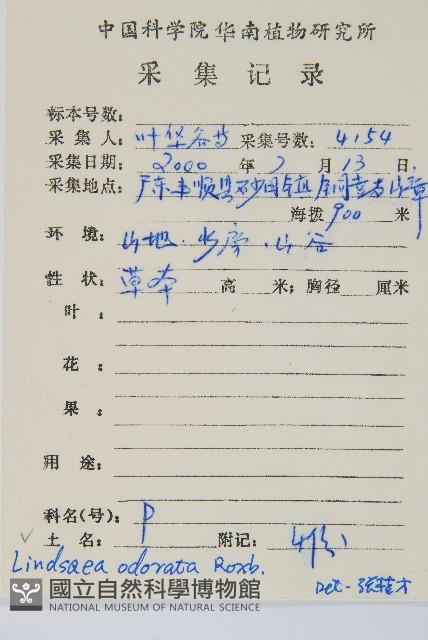 中国科学院华南植物研究所
采集记录
标本号数:
采集人: 叶华谷 采集号数: 4154
采集日期: 2000 年 7 月 13 日.
采集地点: 广东丰顺县
海拨 900 米
环境: 山地. 山谷
性状: 草本 高 米; 胸径 厘米
叶:
花:
果:
用途:
科名(号): P
土名: 附记:
Lindsaea odorata Roxb.
Det - 张桂才
國立自然科學博物館
NATIONAL MUSEUM OF NATURAL SCIENCE